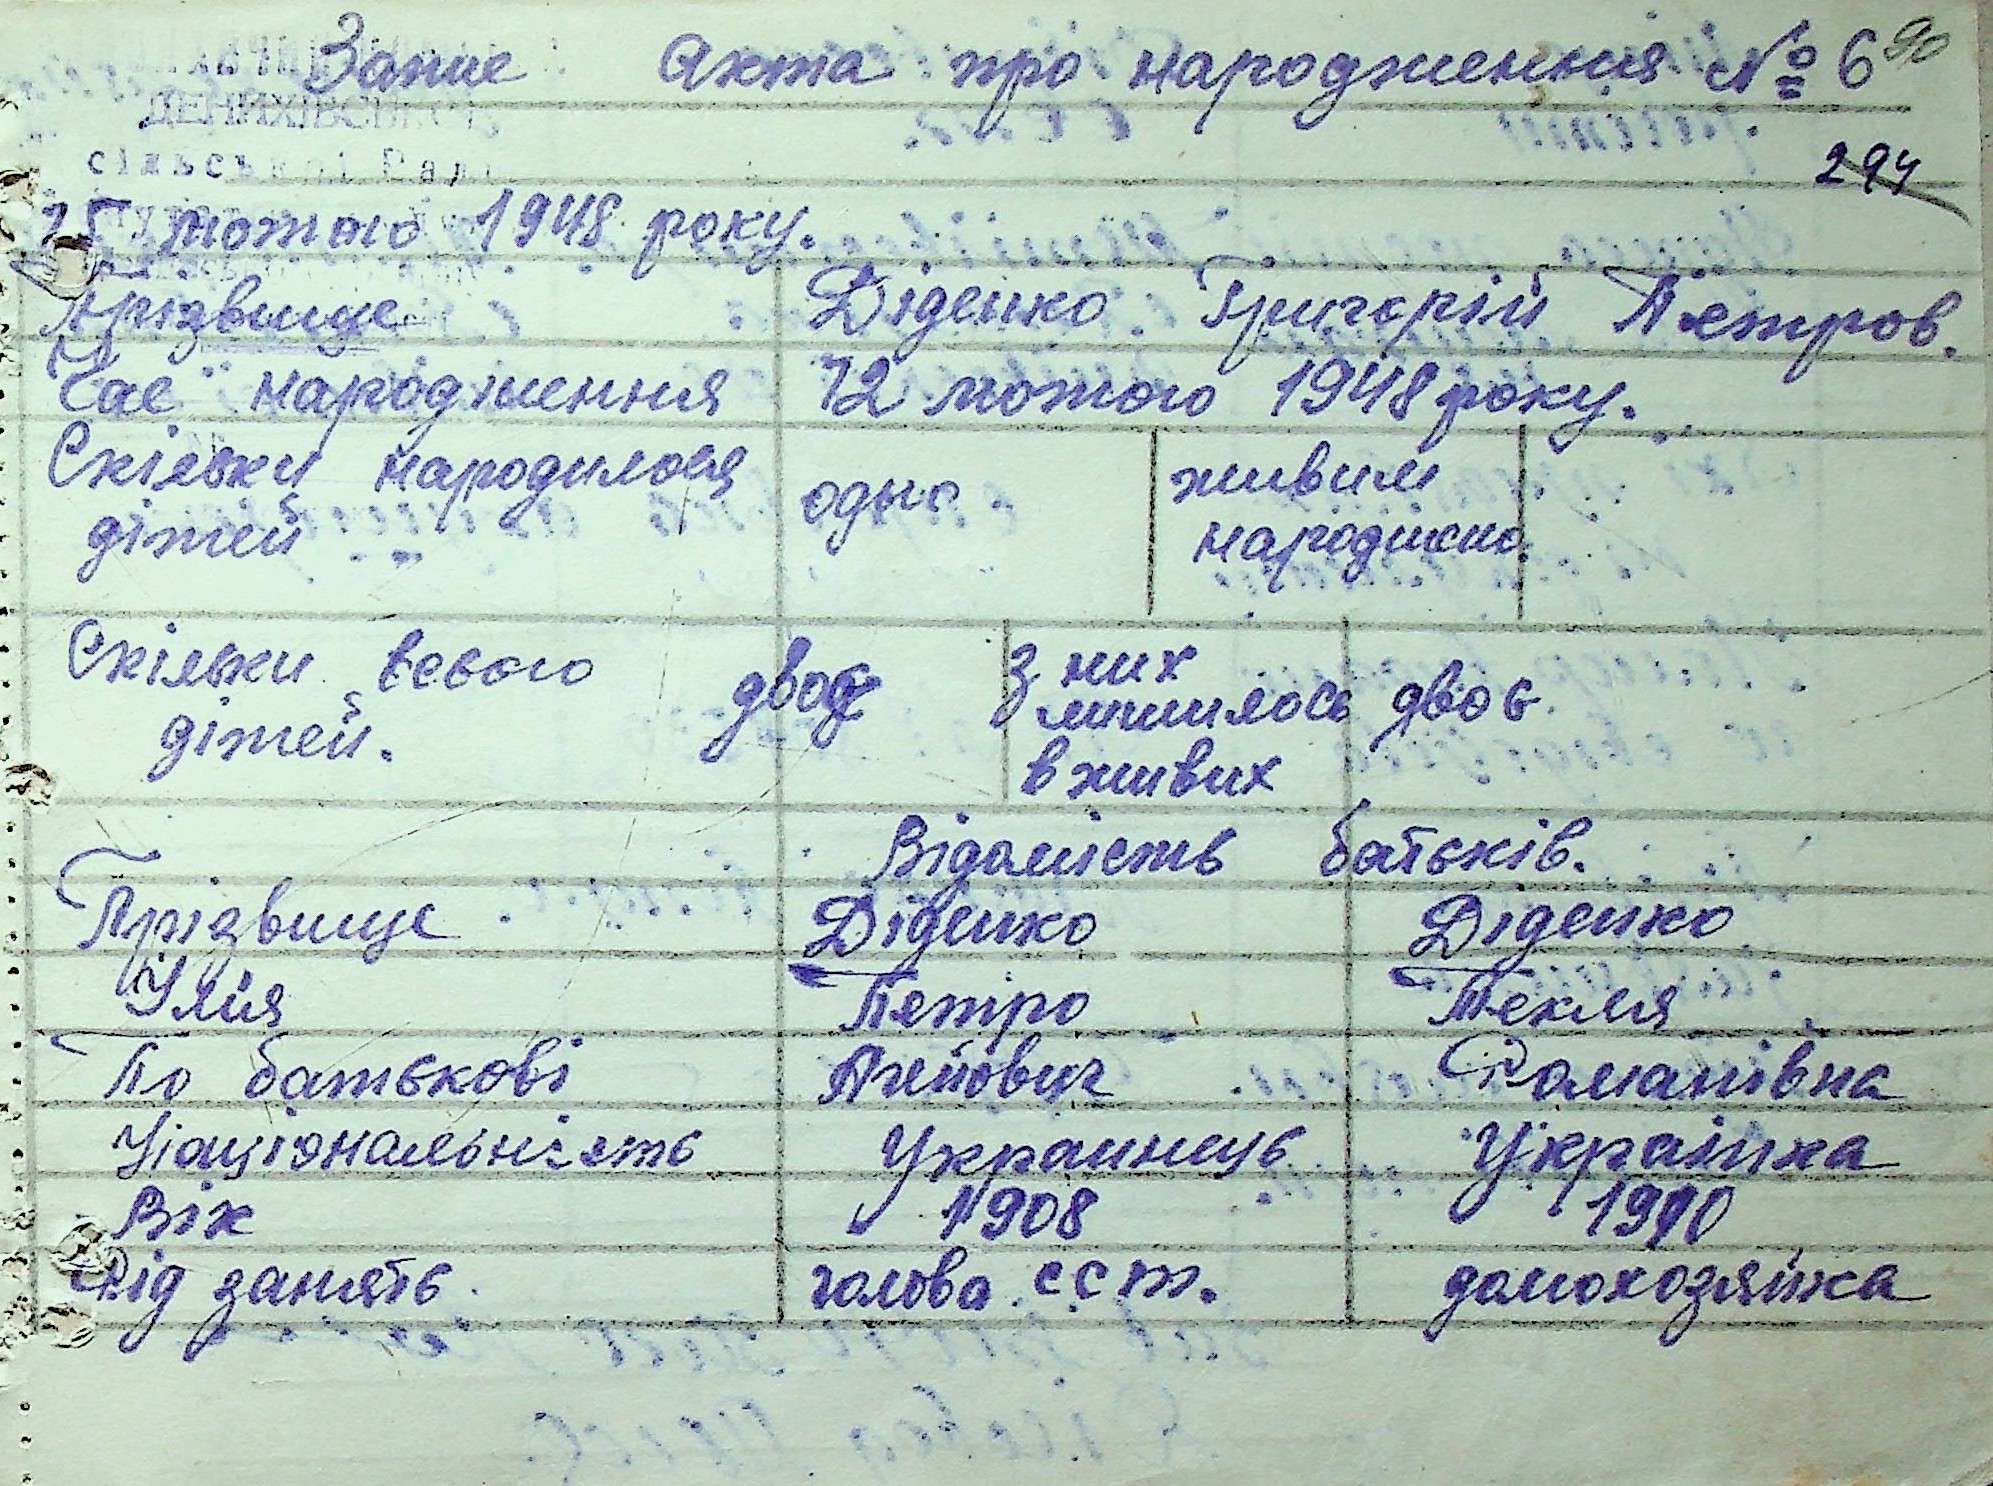 Запис Акта про народження № 6 90
ДЕНИХІВСЬК
сільської Рад
294
15 лютого 1948 року.
Прізвище Діденко Григорій Петров.
Час народження 12 лютого 1948 року.
Скільки народилося дітей одно живим народжено
Скільки всього дітей. двоє З них лишилось в живих двоє
Відомість батьків.
Прізвище Діденко Діденко
Імія Петро Текля
По батькові Романівна
Національність Украинець Українка
Вік 1908 1910
Рід занять голова ССТ. домохозяйка